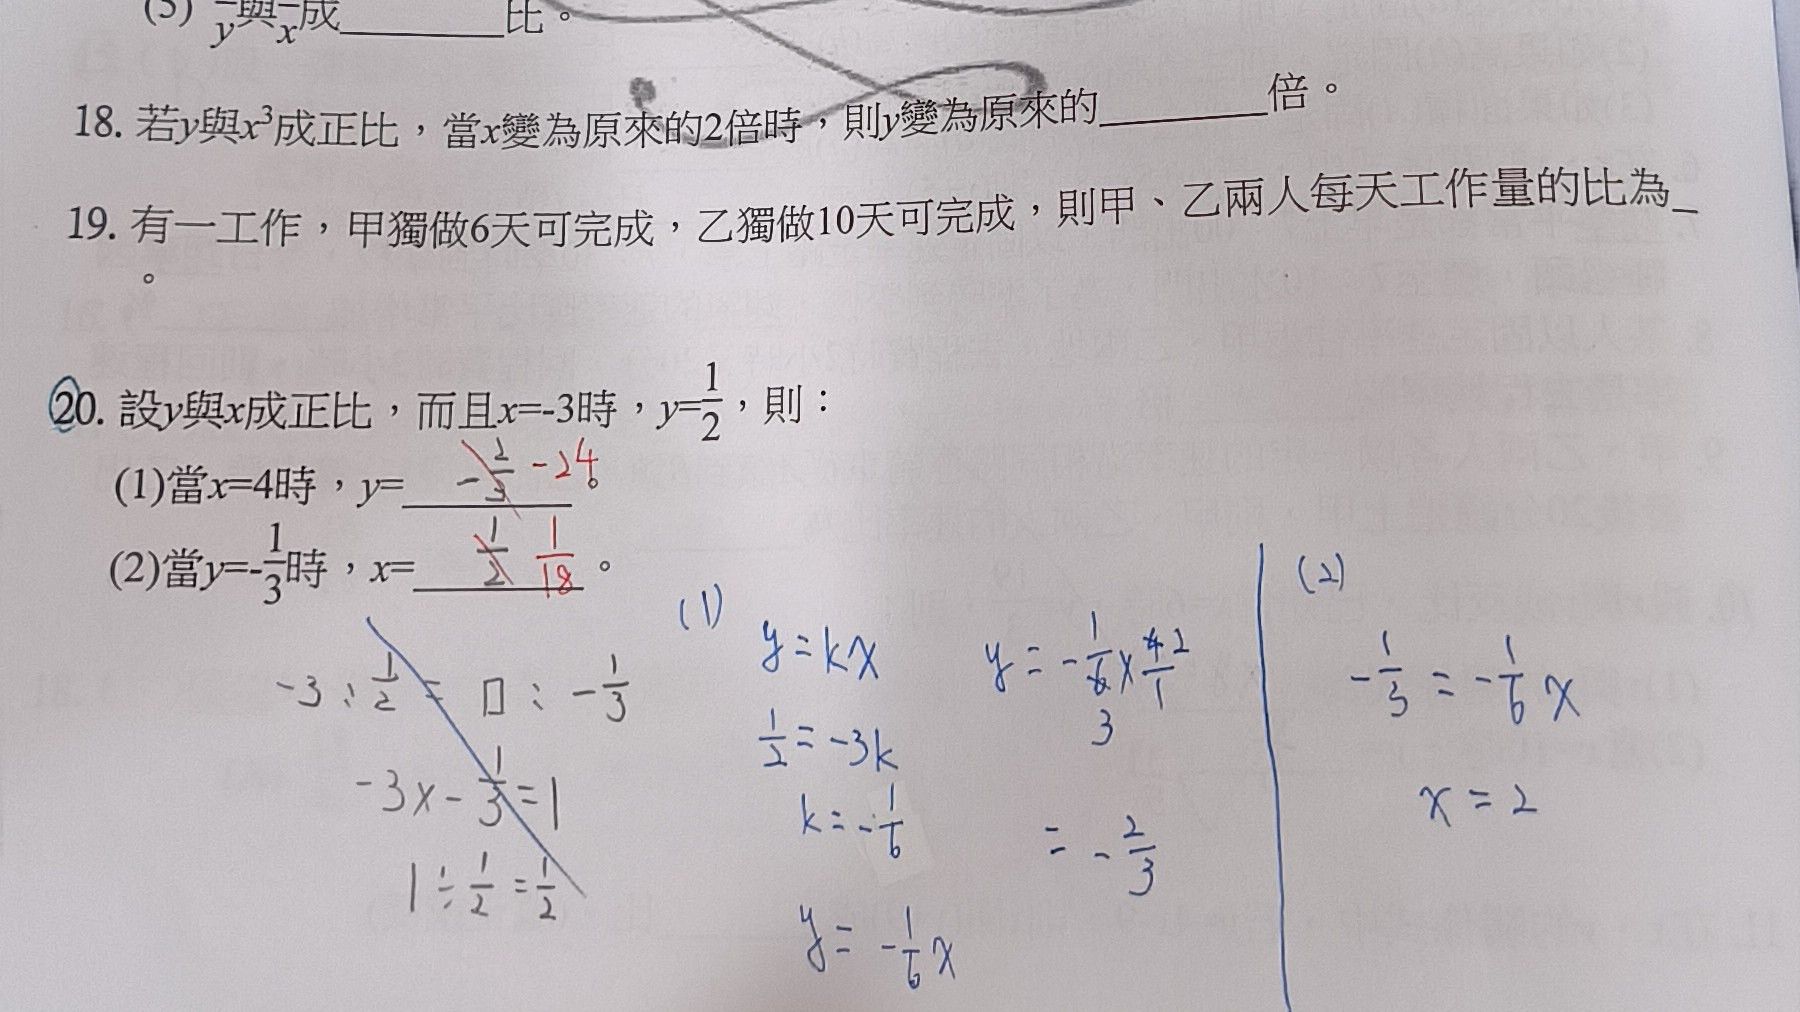 (5) 1/y與1/x成________比。
18. 若y與x³成正比，當x變為原來的2倍時，則y變為原來的________倍。
19. 有一工作，甲獨做6天可完成，乙獨做10天可完成，則甲、乙兩人每天工作量的比為_
。
20. 設y與x成正比，而且x=-3時，y=1/2，則：
(1)當x=4時，y= -2/3 -24。
(2)當y=-1/3時，x= 1/2 1/18。
-3 : 1/2 = □ : -1/3
-3×-1/3=1
1÷1/2=1/2
(1)
y=kx
1/2=-3k
k=-1/6
y=-1/6x
y=-1/6×4/1 2
3
=-2/3
(2)
-1/3=-1/6x
x=2